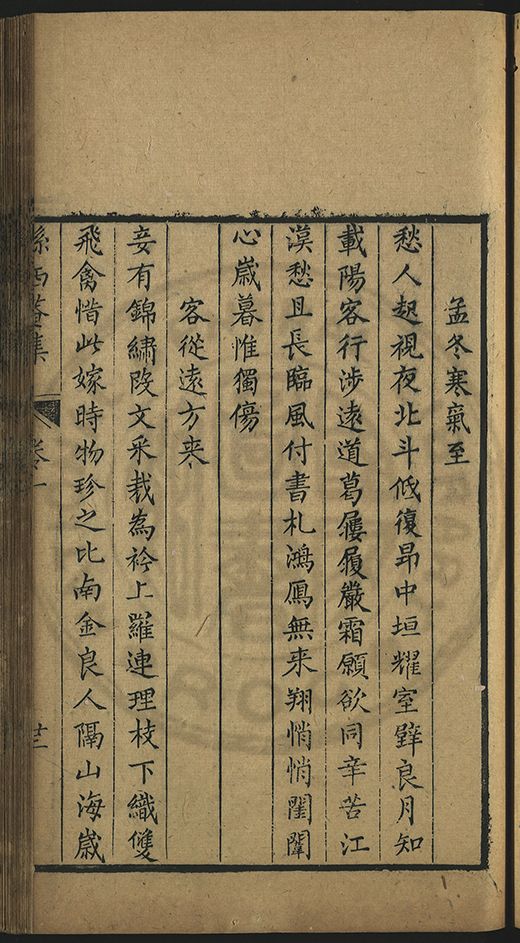 孟冬寒氣至
愁人起視夜北斗低復昻中垣耀室壁良月知
載陽客行涉遠道葛屨履嚴霜願欲同辛苦江
漢愁且長臨風付書札鴻鴈無来翔悄悄閨闈
心嵗暮惟獨傷
客從遠方来
妾有錦繡段文采裁為衿上羅連理枝下織雙
飛禽惜此嫁時物珍之比南金良人隔山海嵗
孫西菴集
卷一
廿二